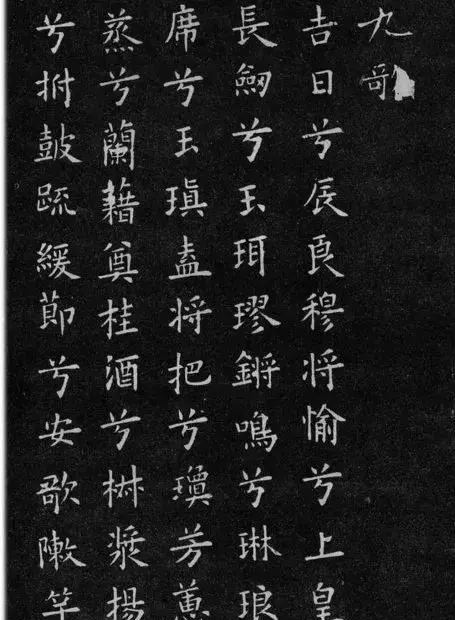 九歌
吉日兮辰良穆将愉兮上皇
長劔兮玉珥璆鏘鳴兮琳琅
席兮玉瑱盍将把兮瓊芳蕙
蒸兮蘭藉奠桂酒兮椒漿揚
兮拊鼓疏緩節兮安歌陳竽